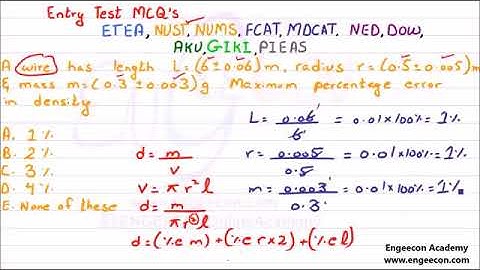 Entry Test MCQ's
ETEA, NUST, NUMS, FCAT, MDCAT, NED, DOW,
AKU, GIKI, PIEAS
A wire has length L = (6 ± 0.06) m, radius r = (0.5 ± 0.005) m
& mass m = (0.3 ± 0.003) g Maximum percentage error
in density
A. 1 %
B. 2 %
C. 3 %
D. 4 %
E. None of these
d = m / v
v = π r² l
d = m / π r² l
L = 0.06 / 6 = 0.01 × 100 % = 1 %
r = 0.005 / 0.5 = 0.01 × 100 % = 1 %
m = 0.003 / 0.3 = 0.01 × 100 % = 1 %
d = (% e m) + (% e r × 2) + (% e l)
Engeecon Academy
www.engeecon.com